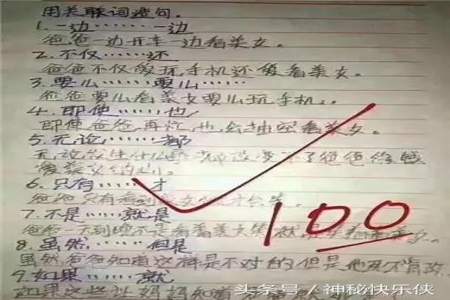 用关联词造句。
1.一边……一边
爸爸一边开车一边看美女。
2.不仅……还
爸爸不仅爱玩手机还爱看美女。
3.要么……要么……
爸爸要么看美女要么玩手机。
4.即使……也
即使爸爸再忙,也会抽空看美女。
5.无论……都
无论
6.只有……才
爸爸只有看到
7.不是……就是
爸爸一天到晚不是看着美女
8.虽然……但是
虽然爸爸知道这样是不对的但是他
9.如果……就
如果
100
头条号/神秘快乐侠